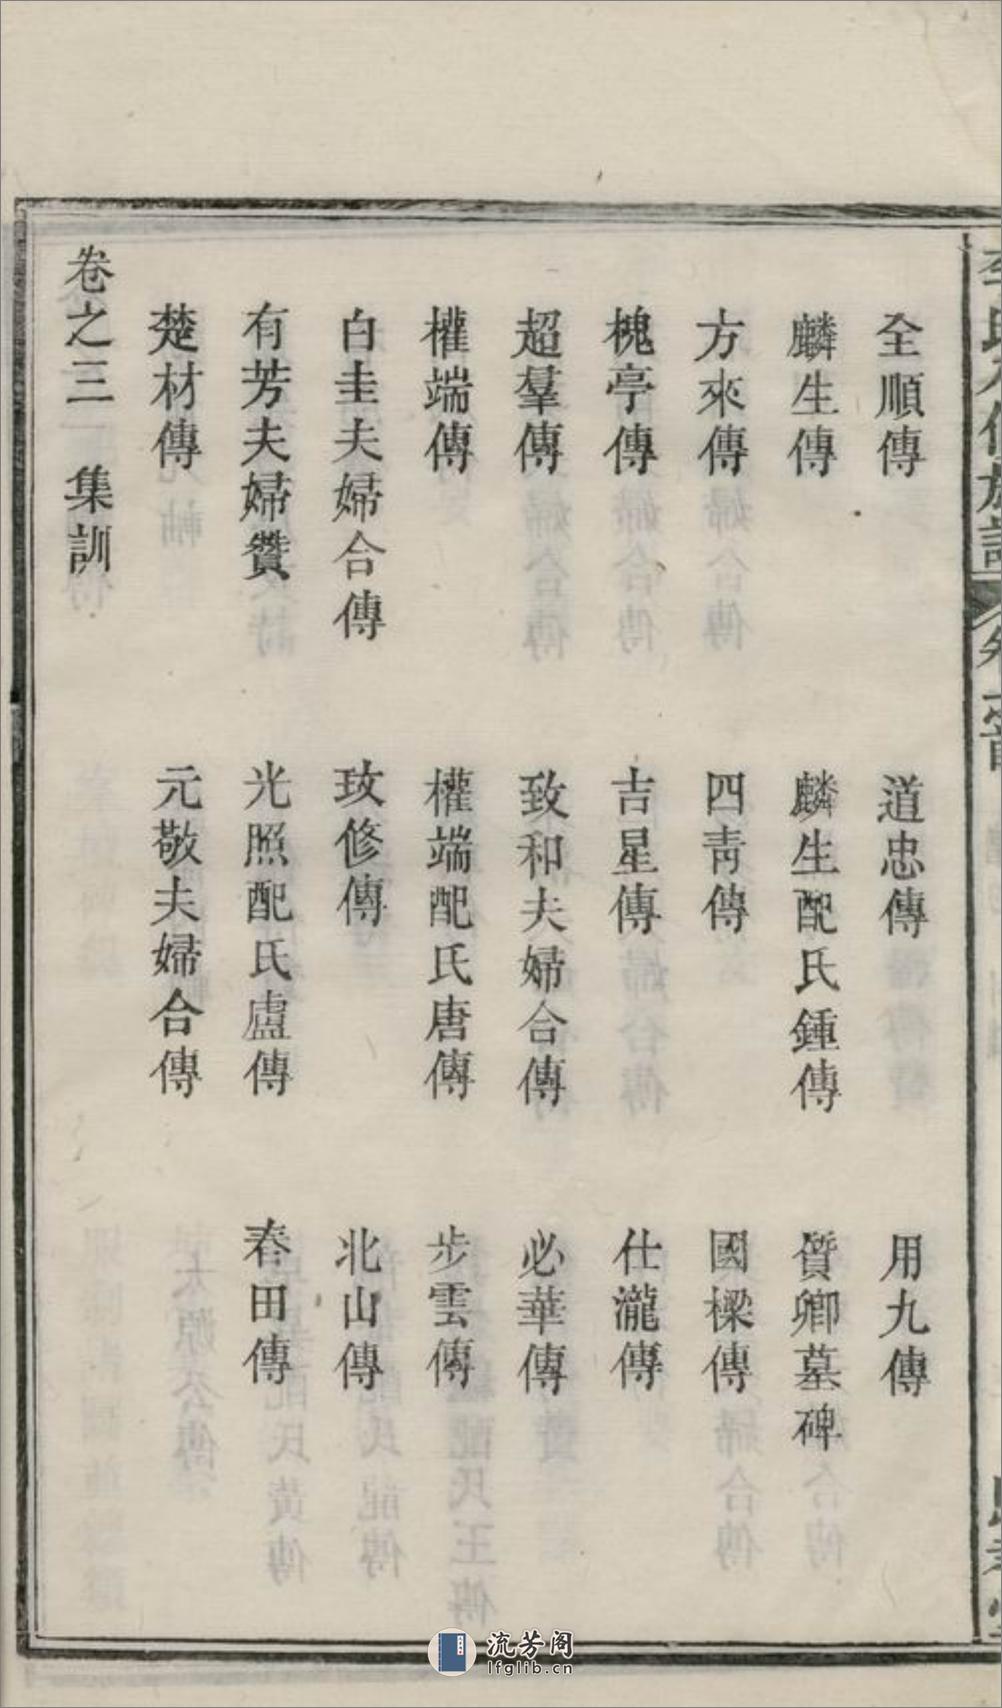 全順傳　道忠傳　用九傳
麟生傳　麟生配氏鍾傳　質卿墓碑
方來傳　四靑傳　國樑傳
槐亭傳　吉星傳　仕瀧傳
超羣傳　致和夫婦合傳　必華傳
權端傳　權端配氏唐傳　步雲傳
白圭夫婦合傳　玫修傳　北山傳
有芳夫婦贊　光照配氏盧傳　春田傳
楚材傳　元敬夫婦合傳
卷之三　集訓
流芳阁
lfglib.cn